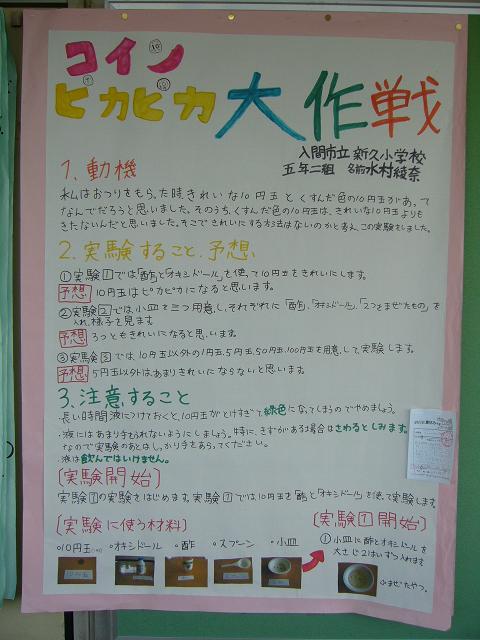 コイン
ピカピカ大作戦
入間市立 新久小学校
五年二組 名前 水村綾奈
1. 動機
私はおつりをもらった時きれいな10円玉とくすんだ色の10円玉があって
なんでだろうと思いました。そのうち、くすんだ色の10円玉は、きれいな10円玉よりも
きたないんだと思いました。そこできれいにする方法はないのかと考え、この実験をしました。
2. 実験すること、予想
①実験1では「酢」と「オキシドール」を使って10円玉をきれいにします。
予想 10円玉はピカピカになると思います。
②実験2では、小皿を三つ用意し、それぞれに「酢」、「オキシドール」、「2つをまぜたもの」を
入れ、様子を見ます
予想 3つともきれいになると思います。
③実験3では、10円玉以外の1円玉、5円玉、50円玉、100円玉を用意して、実験します。
予想 5円玉以外はあまりきれいにならないと思います。
3. 注意すること
長い時間液につけておくと、10円玉がとけすぎて緑色になってしまうのでやめましょう。
・液にはあまり手をふれないようにしましょう。特に、きずがある場合はさわるとしみます。
なので実験のあとは、しっかり手をあらってください。
・液は飲んではいけません。
〔実験開始〕
実験1の実験をはじめます。実験1では10円玉を「酢」と「オキシドール」を使って実験します。
〔実験に使う材料〕
○10円玉 ○オキシドール ○酢 ○スプーン ○小皿
〔実験1開始〕
① 小皿に酢とオキシドールを
大さじ2はいずつ入れます
まぜたやつ。